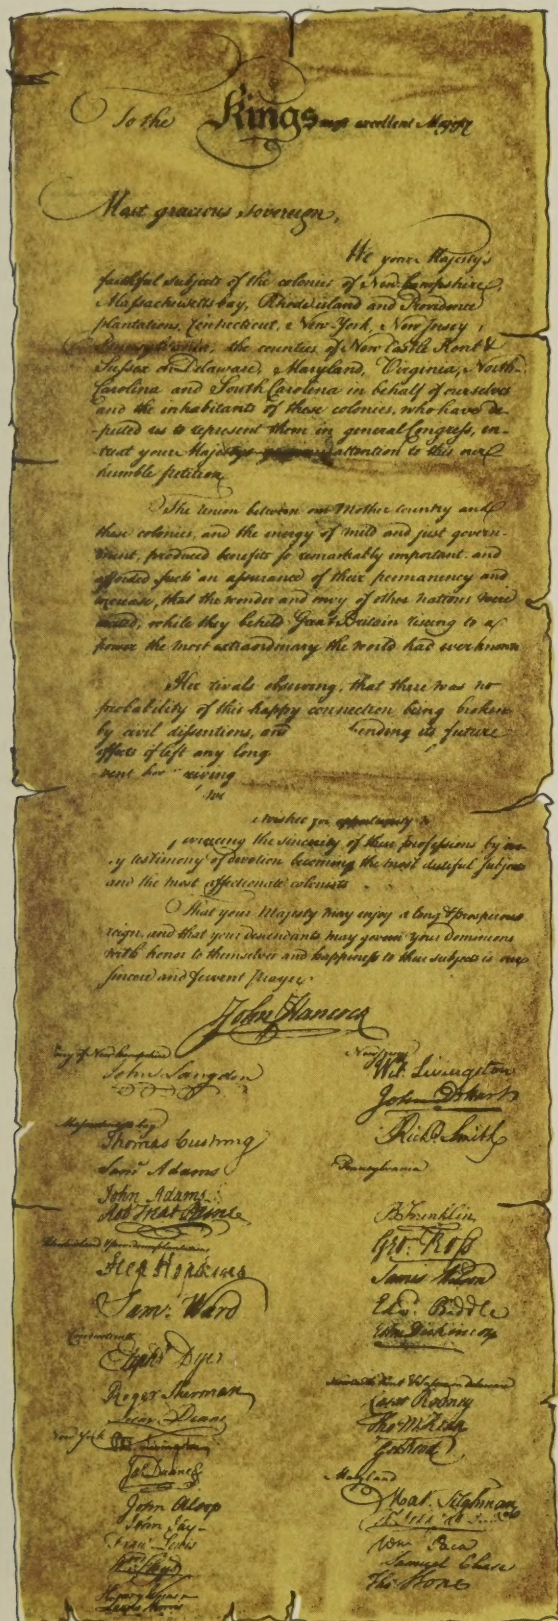 To the Kings most excellent Majesty
Most gracious sovereign,
We your Majesty's
faithful subjects of the colonies of New-hampshire,
Massachusetts bay, Rhode island and Providence
plantations, Connecticut, New-York, New Jersey,
Pennsylvania, the counties of New Castle Kent &
Sussex on Delaware, Maryland, Virginia, North-
Carolina and South Carolina in behalf of ourselves
and the inhabitants of these colonies, who have de-
-puted us to represent them in general Congress, en-
-treat your Majestys attention to this our
humble petition
The union between our Mother Country and
these colonies, and the energy of mild and just govern-
-ment, produced benefits so remarkably important and
afforded such an assurance of their permanency and
increase, that the wonder and envy of other nations were
excited, while they beheld Great Britain riseing to a
power the most extraordinary the world had ever known
Her rivals observing, that there was no
probability of this happy connection being broken
by civil dissentions, and its future
effects if left any long
We
wishes for opportunity
the sincerity of these professions by
testimony of devotion becoming the most dutiful subjects
and the most affectionate colonists
That your Majesty may enjoy a long & prosperous
reign, and that your descendants may govern your Dominions
with honor to themselves and happiness to their subjects is our
sincere and fervent prayer.
John Hancock
Colony of New hampshire
John Langdon
Massachusetts bay
Thomas Cushing
Sam<sup>l</sup> Adams
John Adams
Rob Treat Paine
Rhode island & providence plantations
Step Hopkins
Sam: Ward
Connecticut
Eliph<sup>t</sup> Dyer
Roger Sherman
Silas Deane
New York
Phil Livingston
Jas Duane
John Alsop
John Jay
Fran<sup>s</sup> Lewis
Wm Floyd
Lewis Morris
New Jersey
Wil: Livingston
John D Hart
Rich<sup>d</sup> Smith
Pennsylvania
B Franklin
Geo: Ross
James Wilson
Edw: Biddle
John Dickinson
Caesar Rodney
Tho M:Kean
Geo Read
Maryland
Mat. Tilghman
Wm Paca
Samuel Chase
Tho: Stone